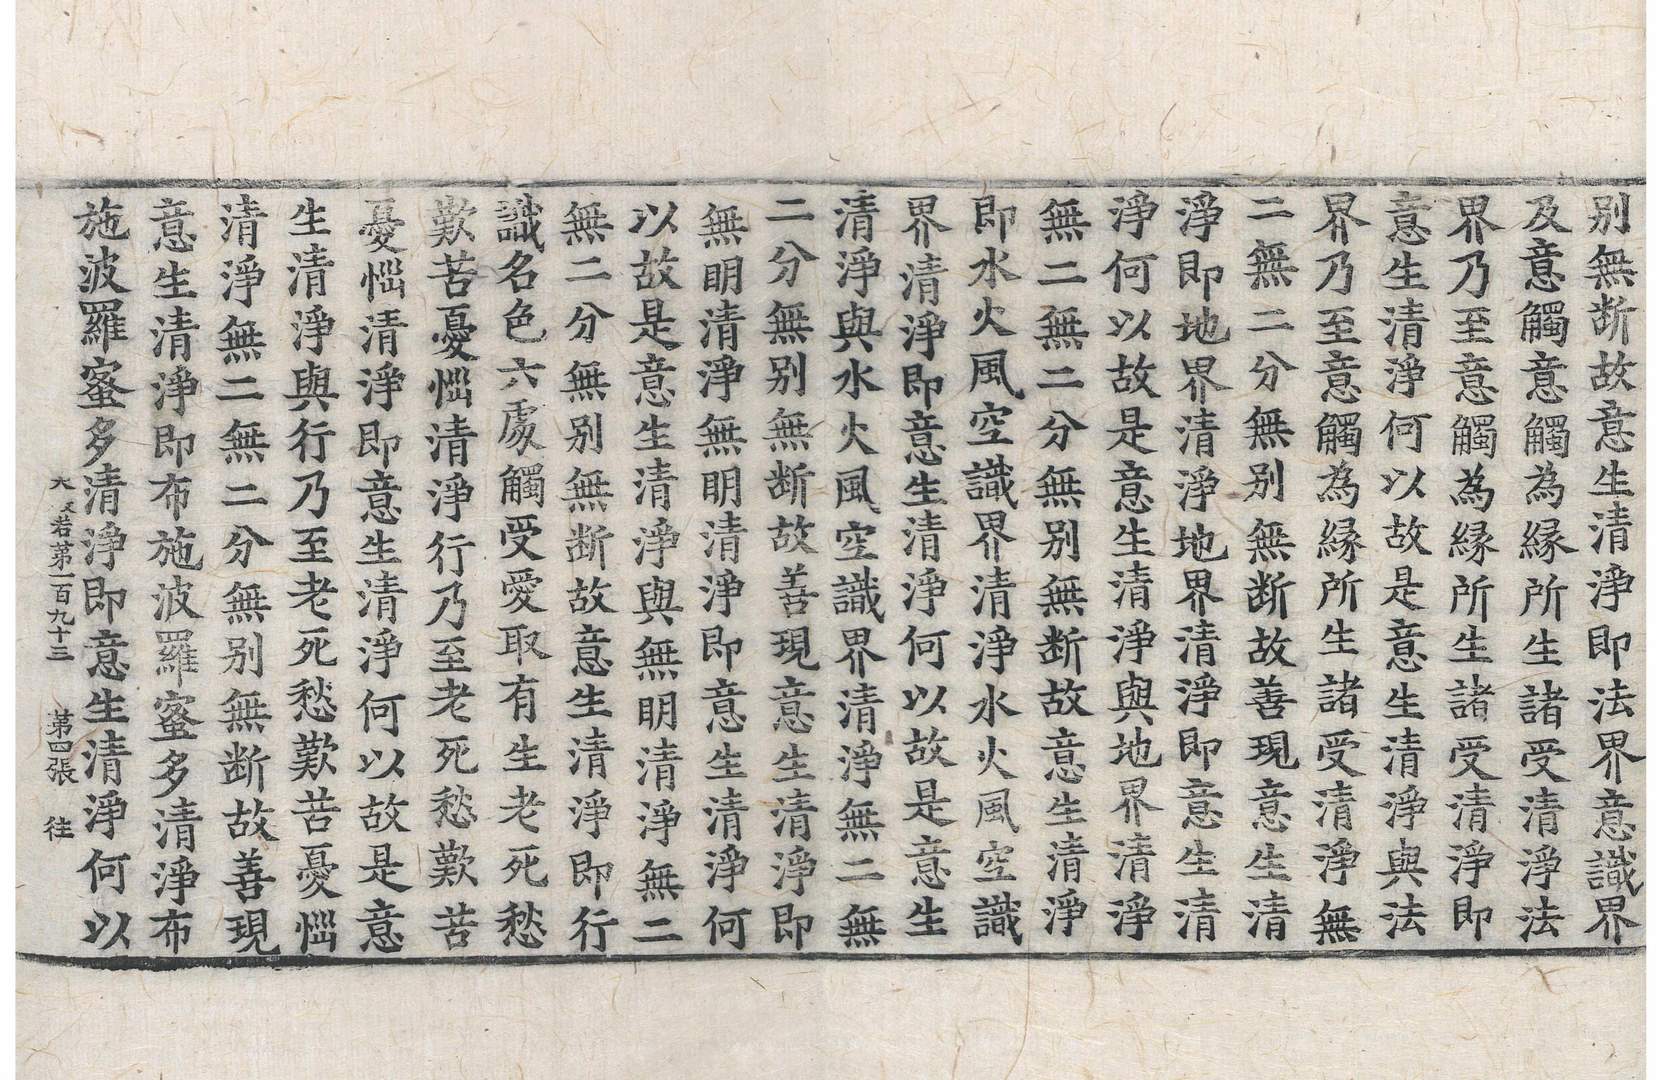 别無断故意生清淨即法界意識界
及意觸意觸為縁所生諸受清淨法
界乃至意觸為縁所生諸受清淨即
意生清淨何以故是意生清淨與法
界乃至意觸為縁所生諸受清淨無
二無二分無别無断故善現意生清
淨即地界清淨地界清淨即意生清
淨何以故是意生清淨與地界清淨
無二無二分無别無断故意生清淨
即水火風空識界清淨水火風空識
界清淨即意生清淨何以故是意生
清淨與水火風空識界清淨無二無
二分無别無断故善現意生清淨即
無明清淨無明清淨即意生清淨何
以故是意生清淨與無明清淨無二
無二分無别無断故意生清淨即行
識名色六處觸受愛取有生老死愁
歎苦憂惱清淨行乃至老死愁歎苦
憂惱清淨即意生清淨何以故是意
生清淨與行乃至老死愁歎苦憂惱
清淨無二無二分無别無断故善現
意生清淨即布施波羅蜜多清淨布
施波羅蜜多清淨即意生清淨何以
大般若第一百九十三 第四張 往